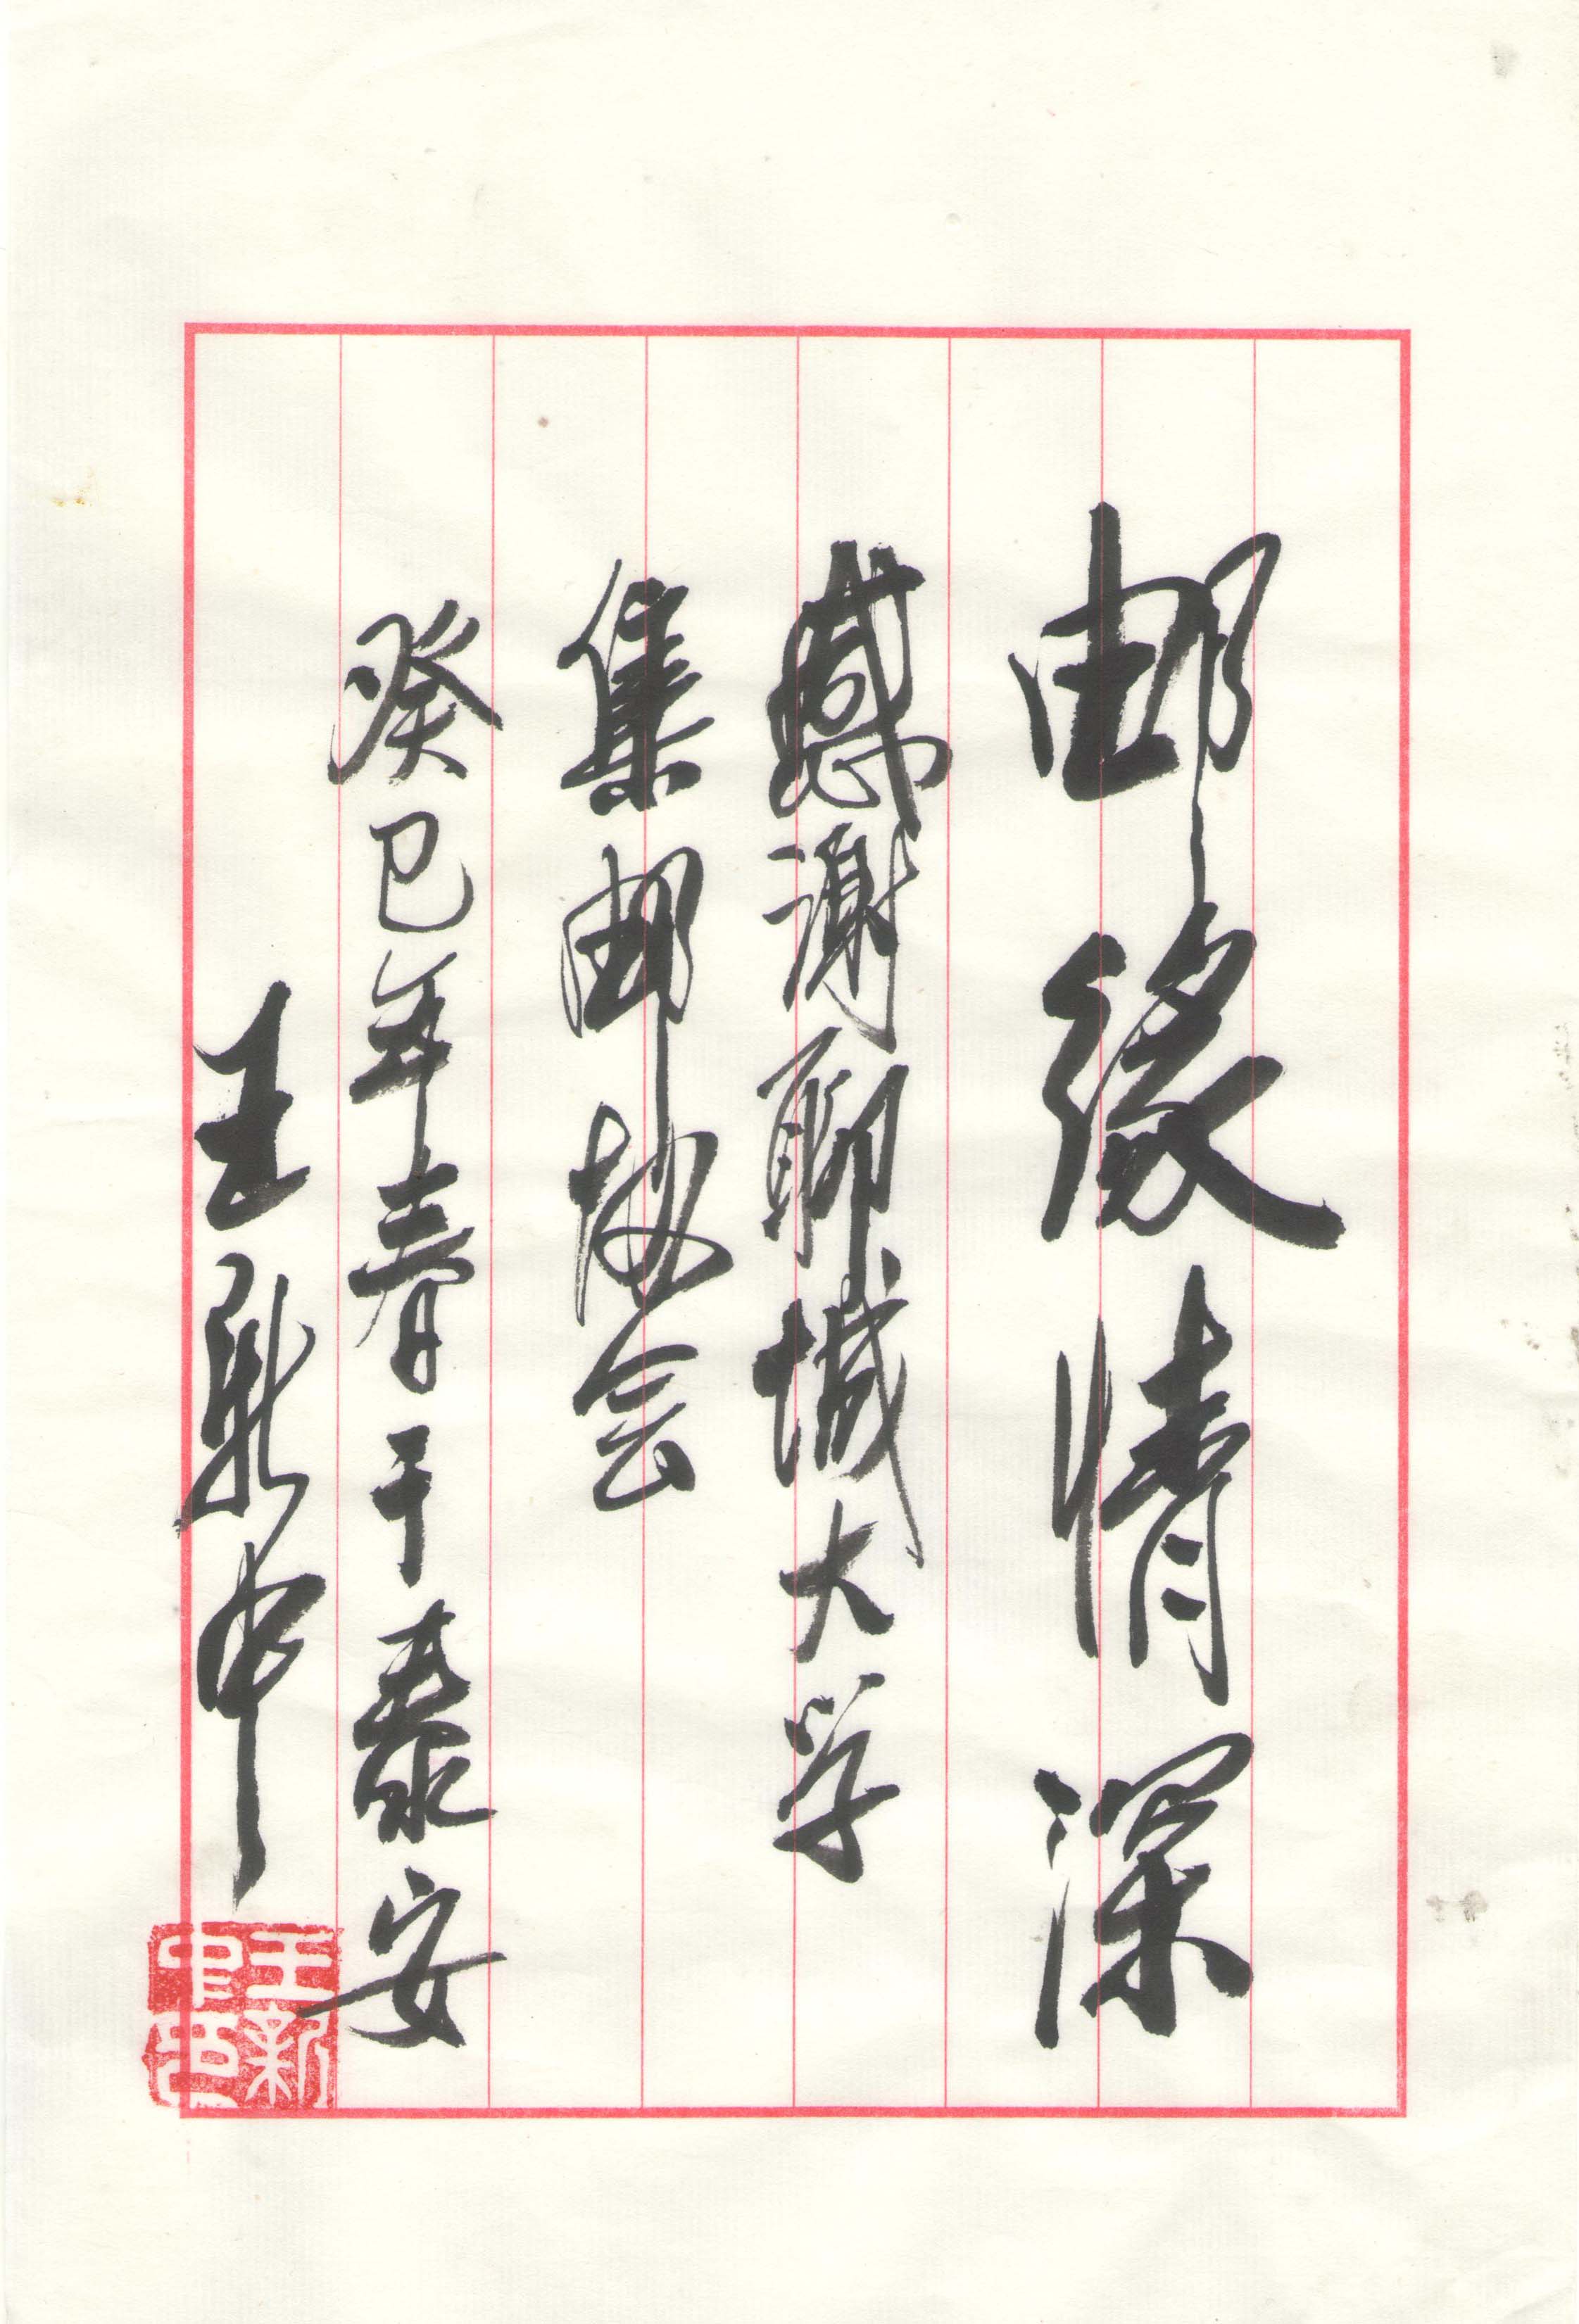 邮缘情深
感谢聊城大学
集邮协会
癸巳年春于泰安
王新中
王新
中印